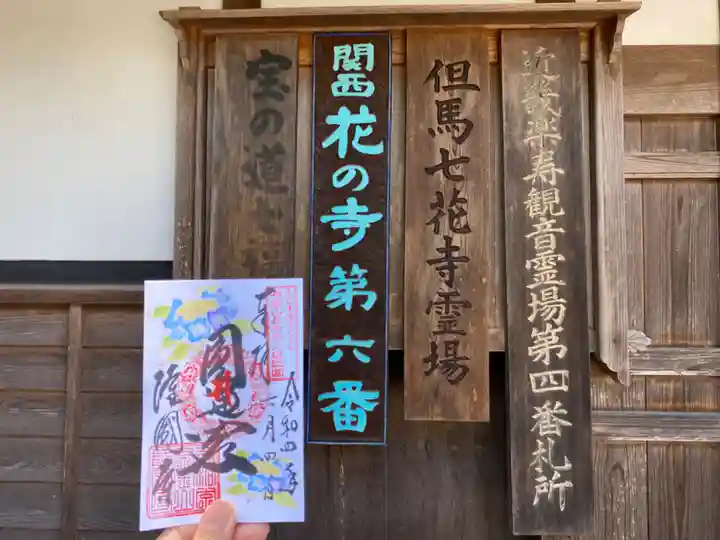 近畿楽寿観音霊場第四番札所
但馬七花寺霊場
関西花の寺第六番
宝の道七
奉拝
令和四年
六月四日
圓通
隆國寺